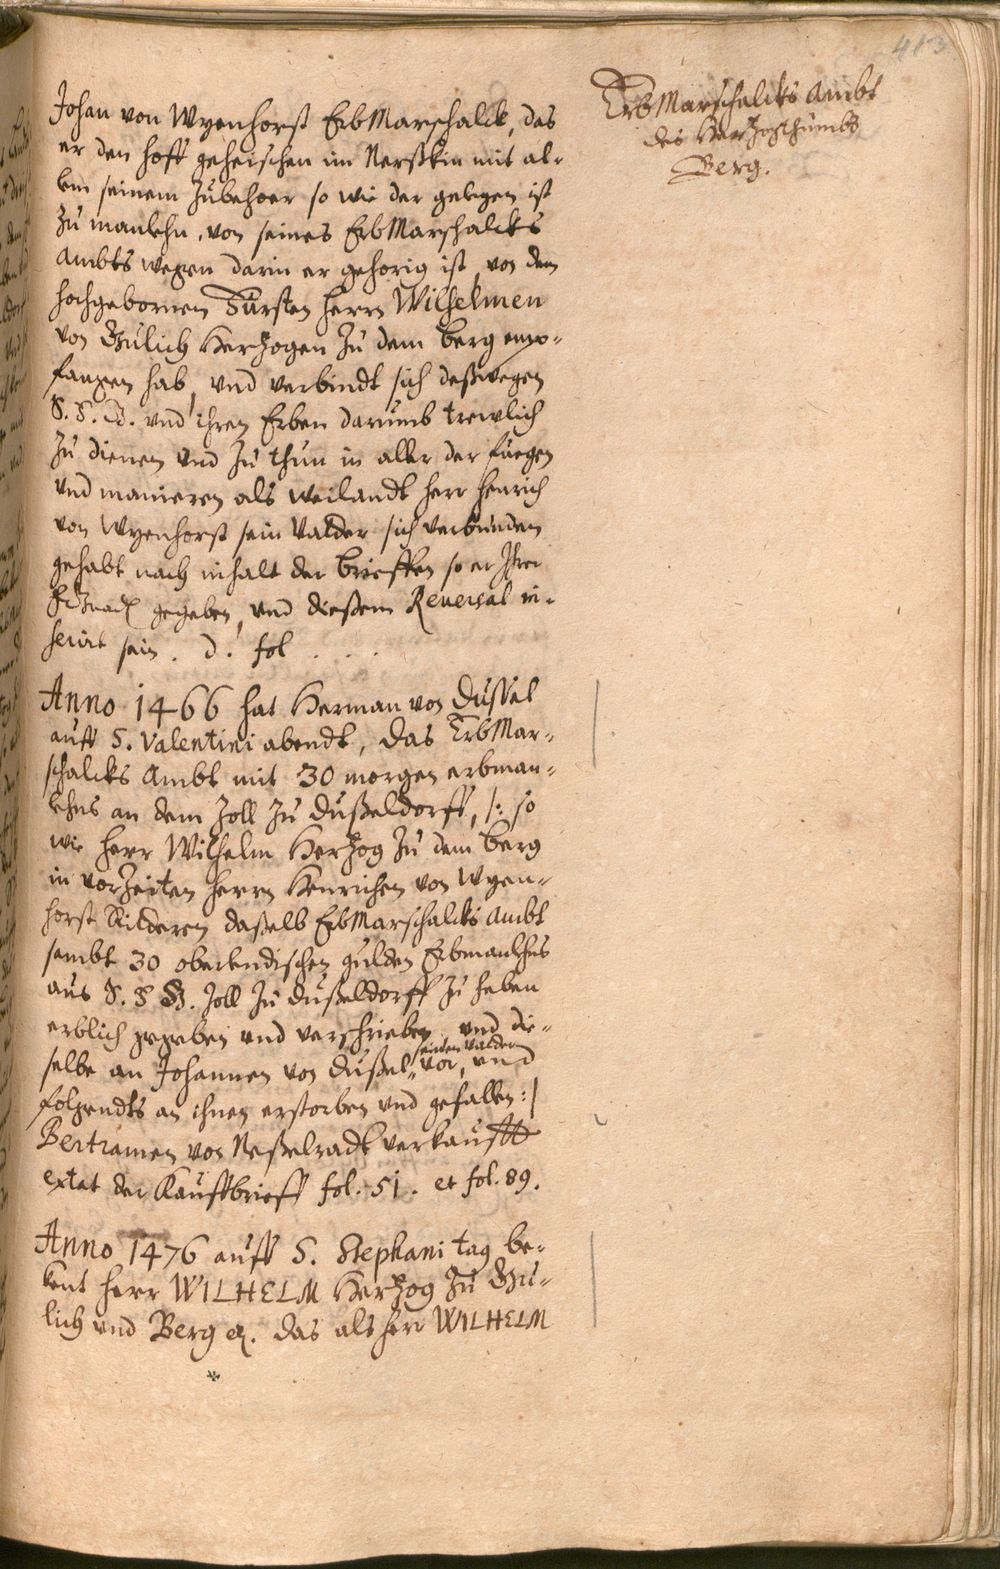 413
ErbMarschalcks Ambt
des Hertzogthumbs
Berg.
Johan von Wyenhorst ErbMarschalck, das
er den hoff geheischen im Nersskin mit al-
lem seinem zubehoer so wie der gelegen ist
zu manlehn, von seines ErbMarschalcks
Ambts wegen darin er gehorig ist, von dem
hochgebornen Fürsten herrn Wilhelmen
von Gulich Hertzogen zu dem Berg emp-
fangen hab, und verbindt sich deßwegen
S. F. G. vnd ihren Erben darumb trewlich
zu dienen vnd zu thun in aller der fuegen
vnd manieren als weilandt herr Henrich
von Wyenhorst sein Vatter sich verbunden
gehabt nach inhalt der brieffen so er Ihrer
gegeben, vnd dießem Reversal in-
serirt sein. d. fol . . .
Anno 1466 hat Herman von Dussel
auff S. Valentini abendt, das ErbMar-
schalcks Ambt mit 30 morgen erbman-
lehns an dem Zoll zu Dußeldorff, /: so
wie herr Wilhelm Hertzog zu dem Berg
in vorzeiten herrn Henrichen von Wyen-
horst Ritteren daßelb ErbMarschalcks Ambt
sambt 30 oberlendischen gulden Erbmanlehns
aus S. F. G. Zoll zu Dußeldorff zu haben
erblich gegeben vnd verschrieben, vnd die-
selbe an Johannen von Dußel seinen Vatter vor, vnd
folgendts an ihnen erstorben vnd gefallen :/
Bertramen von Neßelradt verkaufft
extat der Kauffbrieff fol. 51. et fol. 89.
Anno 1476 auff S. Stephani tag be-
kent herr WILHELM Hertzog zu Gu-
lich vnd Berg etc. das als herr WILHELM